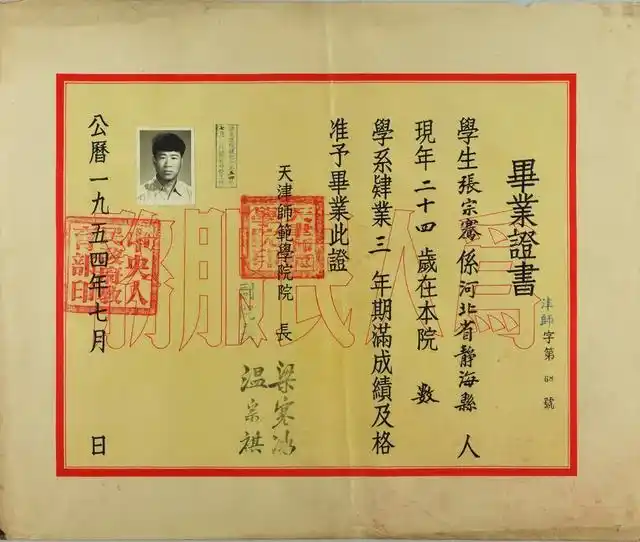 畢業證書
津師字第 號
學生張宗騫係河北省靜海縣人
現年二十四歲在本院數
學系肄業三年期滿成績及格
准予畢業此證
天津師範學院院長
梁寒冰
溫宗祺
公曆一九五四年七月 日
為人民服務
中央人民政府教育部印